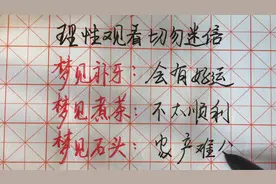 理性观看切勿迷信
梦见补牙：会有好运
梦见煮菜：不太顺利
梦见石头：家产难分